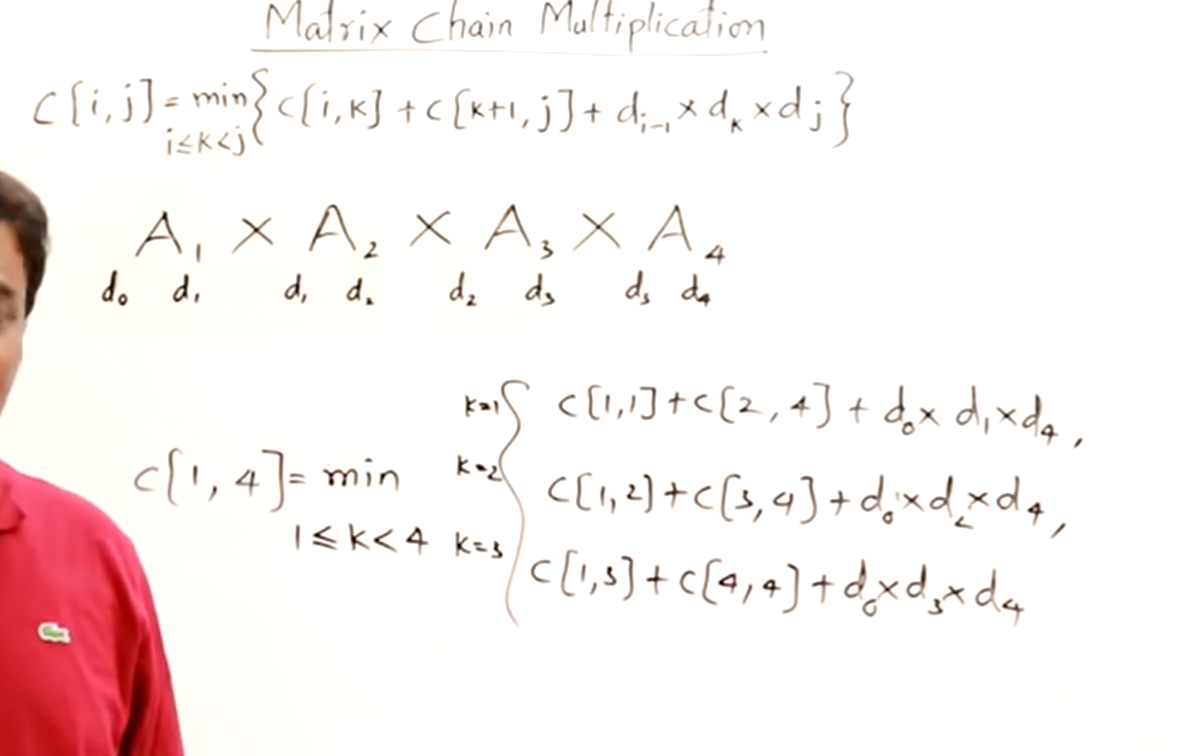 Matrix Chain Multiplication
C[i,j] = min { C[i,k] + C[k+1,j] + dᵢ₋₁ × dₖ × dⱼ }
i≤k<j
A₁ × A₂ × A₃ × A₄
d₀ d₁ d₁ d₂ d₂ d₃ d₃ d₄
k=1 C[1,1] + C[2,4] + d₀ × d₁ × d₄,
C[1,4] = min k=2 C[1,2] + C[3,4] + d₀ × d₂ × d₄,
1≤k<4 k=3 C[1,3] + C[4,4] + d₀ × d₃ × d₄